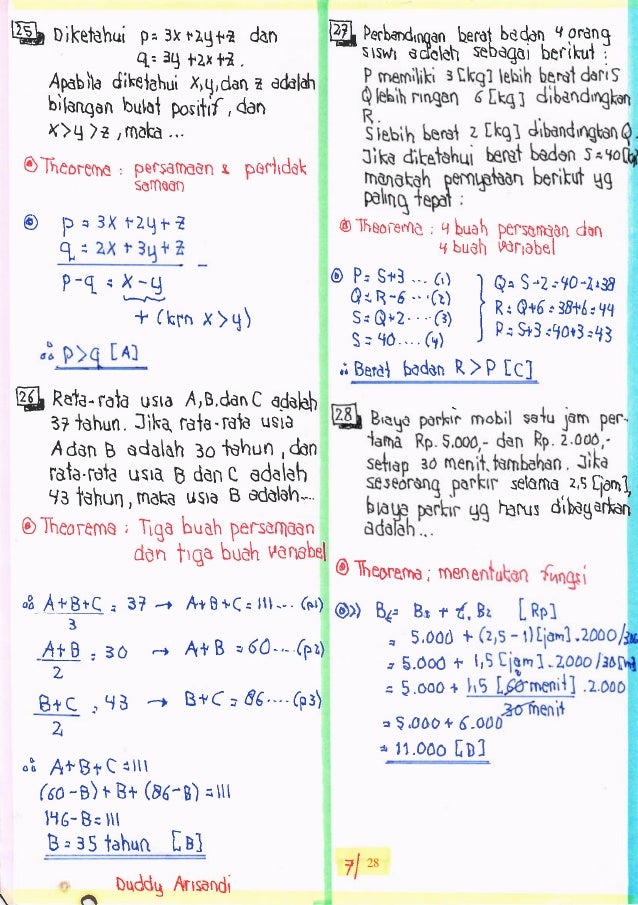 25 Diketahui p = 3x+2y+z dan
q = 3y+2x+z.
Apabila diketahui x,y,dan z adalah
bilangan bulat positif, dan
x>y>z, maka ...
Theorema : persamaan & pertidak
samaan
p = 3x+2y+z
q = 2x+3y+z
p-q = x-y
+ (krn x>y)
∴ p>q [A]
26 Rata-rata usia A,B,dan C adalah
37 tahun. Jika rata-rata usia
A dan B adalah 30 tahun, dan
rata-rata usia B dan C adalah
43 tahun, maka usia B adalah....
Theorema : Tiga buah persamaan
dan tiga buah variabel
∴ A+B+C = 37 → A+B+C = 111.... (p1)
3
A+B = 30 → A+B = 60....(p2)
2
B+C = 43 → B+C = 86....(p3)
2
∴ A+B+C = 111
(60-B)+B+(86-B) = 111
146-B = 111
B = 35 tahun [B]
Duddy Arisandi
27 Perbandingan berat badan 4 orang
siswi adalah sebagai berikut :
P memiliki 3 [kg] lebih berat dari S
Q lebih ringan 6 [kg] dibandingkan
R.
S lebih berat 2 [kg] dibandingkan Q.
Jika diketahui berat badan S = 40 [kg]
manakah pernyataan berikut yg
paling tepat :
Theorema : 4 buah persamaan dan
4 buah variabel
P = S+3 ... (1)
Q = R-6 ... (2)
S = Q+2 ... (3)
S = 40 .... (4)
Q = S-2 = 40-2 = 38
R = Q+6 = 38+6 = 44
P = S+3 = 40+3 = 43
∴ Berat badan R>P [C]
28 Biaya parkir mobil satu jam per-
tama Rp. 5.000,- dan Rp. 2.000,-
setiap 30 menit tambahan. Jika
seseorang parkir selama 2,5 [jam],
biaya parkir yg harus dibayarkan
adalah...
Theorema : menentukan fungsi
Bt = B1 + t. B2 [Rp]
= 5.000 + (2,5-1)[jam].2000/30
= 5.000 + 1,5 [jam].2000/30[m]
= 5.000 + 1,5 [60 menit] .2.000
30 menit
= 5.000 + 6.000
= 11.000 [D]
7/28